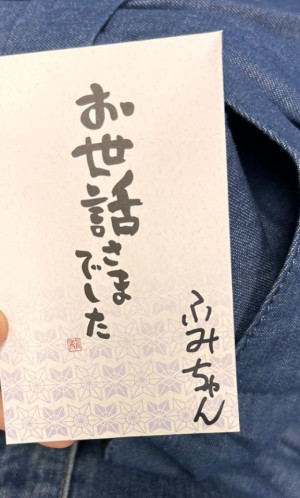 お世話さま
でした
ふみちゃん